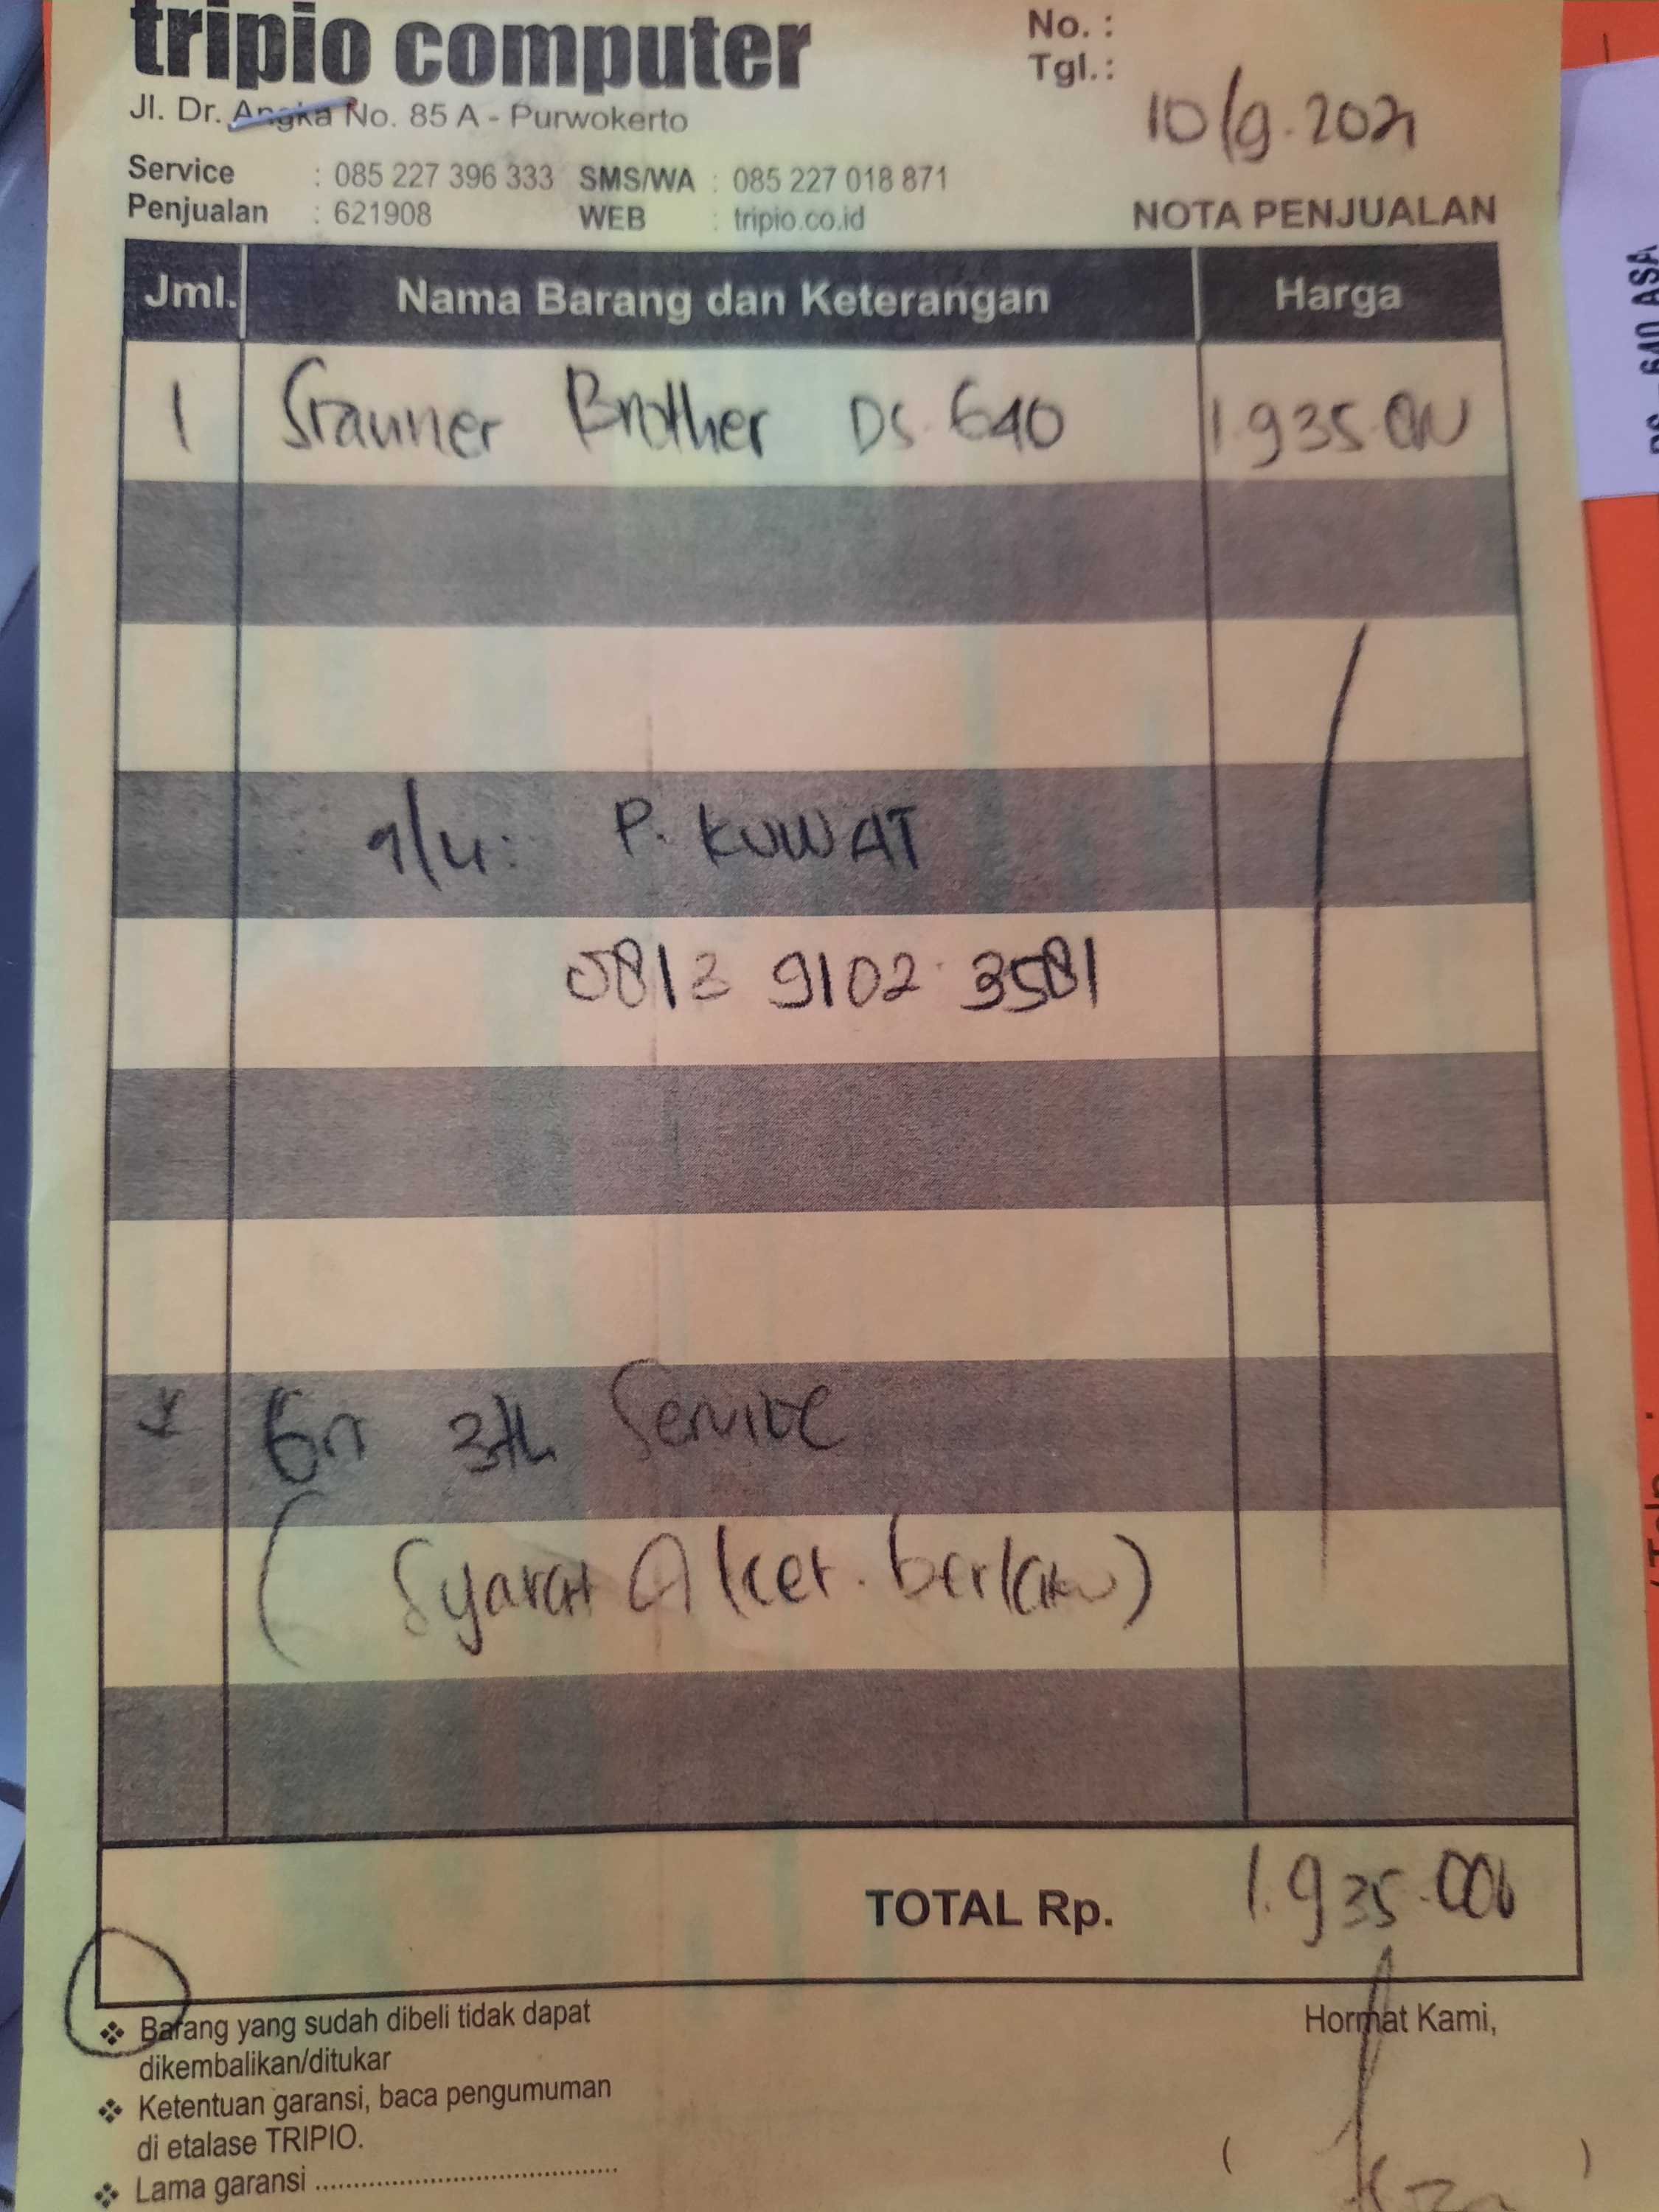 tripio computer
No. :
Tgl. :
10/9.2021
Jl. Dr. Angka No. 85 A - Purwokerto
Service : 085 227 396 333 SMS/WA : 085 227 018 871
Penjualan : 621908 WEB : tripio.co.id
NOTA PENJUALAN
Jml. Nama Barang dan Keterangan Harga
1 Scanner Brother DS.640 1.935.000
P. KUWAT
0813 9102 3581
* Grr 3th Service
(Syarat & ket. berlaku)
TOTAL Rp. 1.935.000
❖ Barang yang sudah dibeli tidak dapat
dikembalikan/ditukar
❖ Ketentuan garansi, baca pengumuman
di etalase TRIPIO.
❖ Lama garansi ..........................................
Hormat Kami,
( )
640 ASA